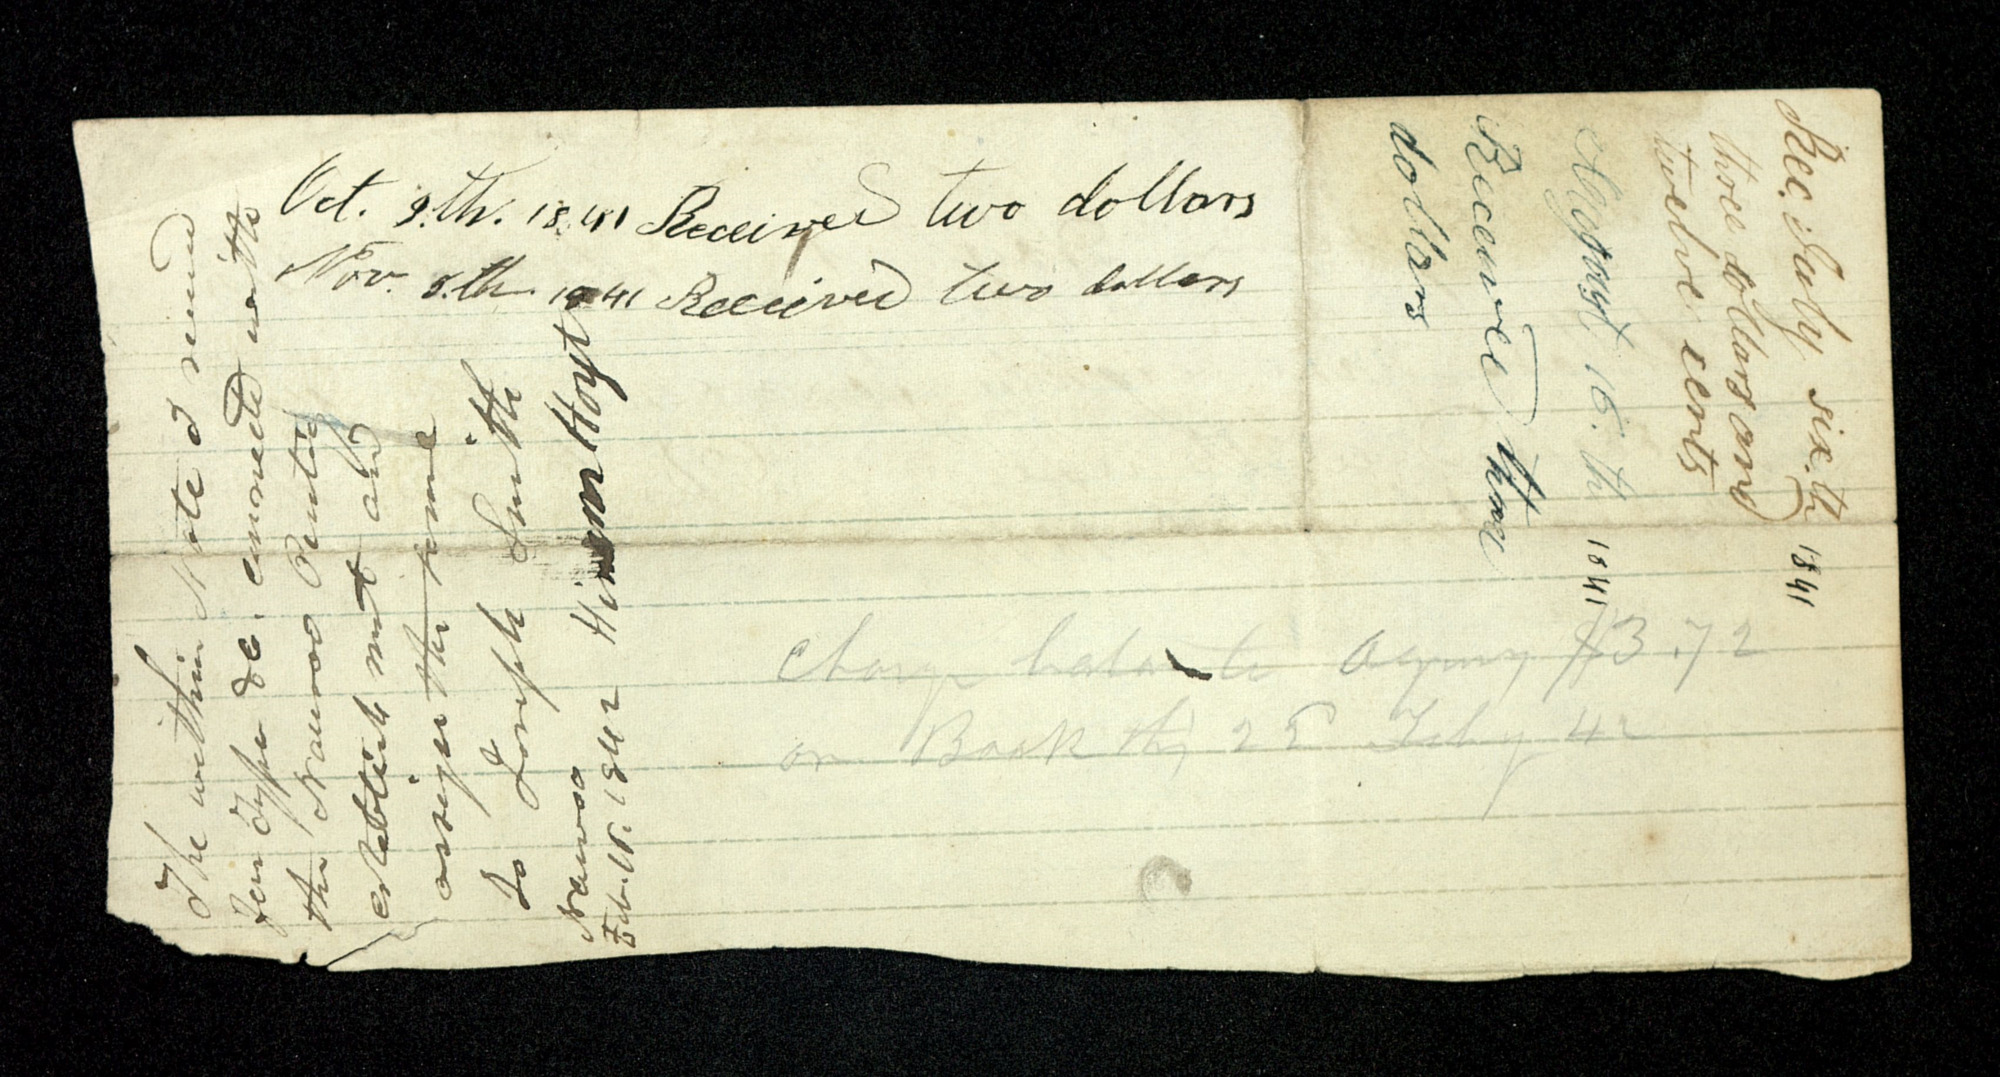 Oct. 9.th. 1841 Received two dollars
Nov. 8.th. 1841 Received two dollars
Rec. July six.th 1841
three dollars and
twelve cents
August 16.th 1841
Received three
dollars
The within Note I
for Type &c. connected with
the Nauvoo Printing
establishment and
assign the same
to Joseph Smith
Nauvoo Hoyt
Feb. 1842
Charge balance Agency $3.72
on Book this 25 Feby 42